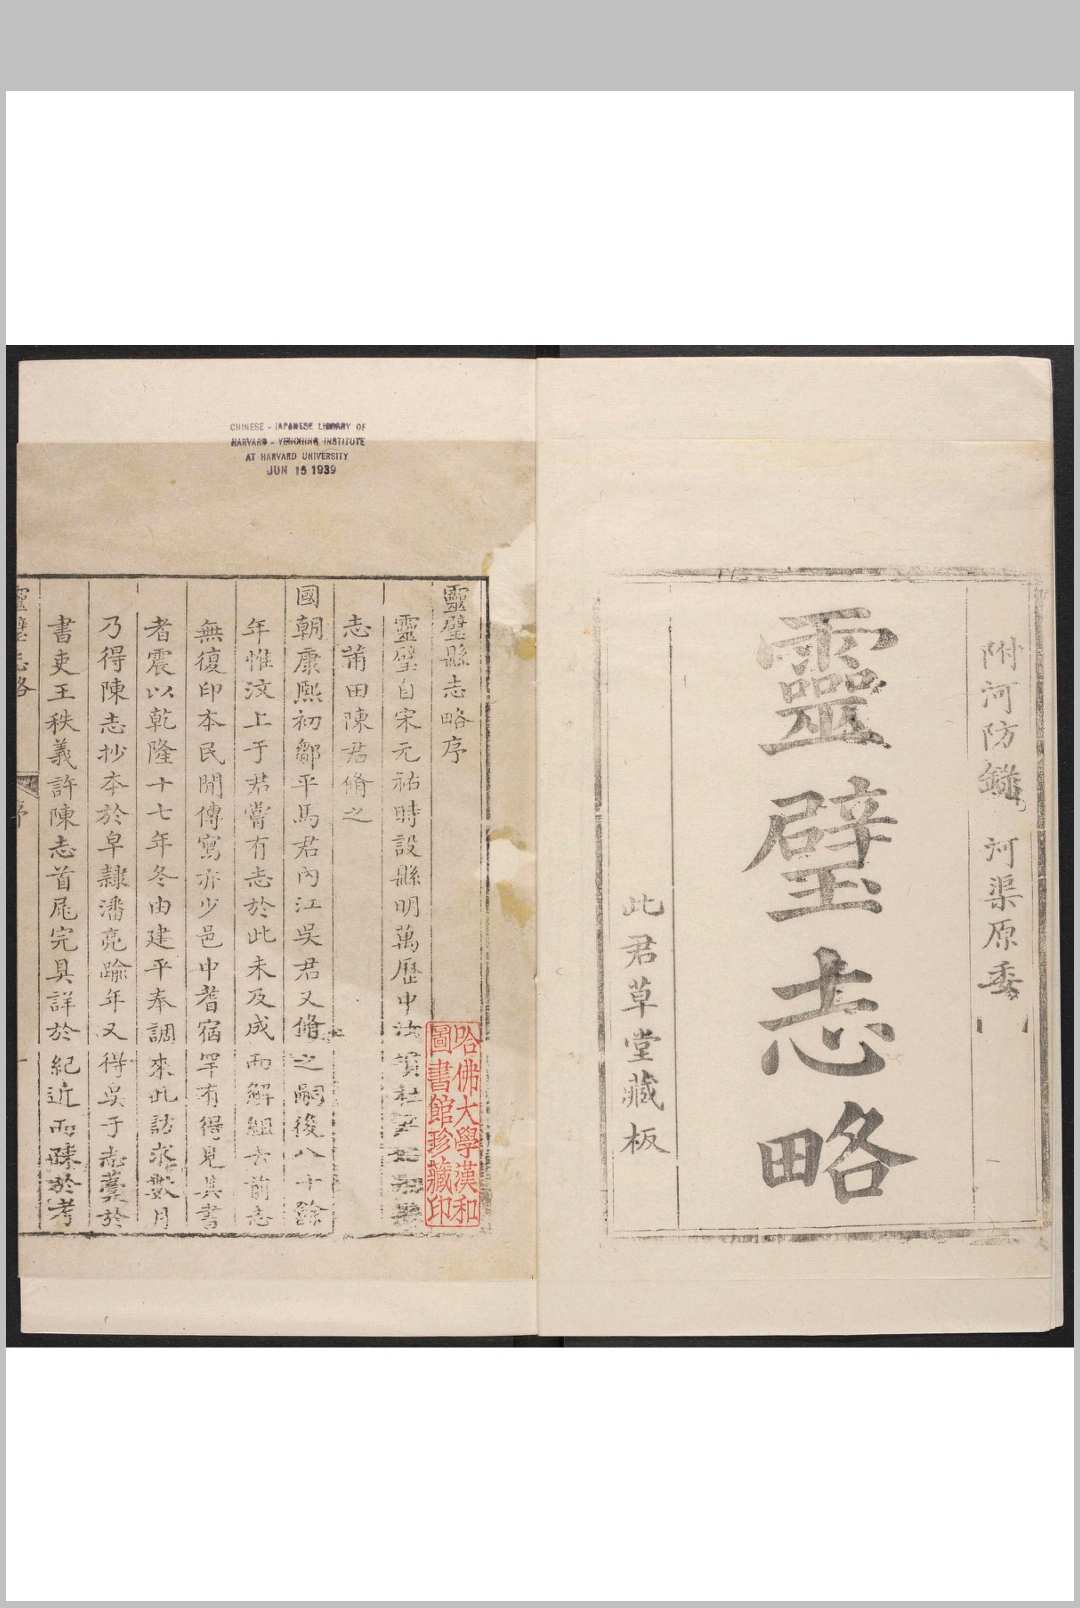 附河防錄 河渠原委
靈璧志略
此君草堂藏板
CHINESE - JAPANESE LIBRARY OF
HARVARD - YENCHING INSTITUTE
AT HARVARD UNIVERSITY
JUN 15 1939
靈璧縣志略序
靈璧自宋元祐時設縣明萬歷中
志莆田陳君脩之
國朝康熙初鄒平馬君內江吳君又脩之嗣後八十餘
年惟汶上于君嘗有志於此未及成而解組去前志
無復印本民閒傳寫亦少邑中耆宿罕有得見其書
者震以乾隆十七年冬由建平奉調來此訪求數月
乃得陳志抄本於皁隸潘亮踰年又得吳于志藁於
書吏王秩義許陳志首尾完具詳於紀近而疎於考
靈璧志略
序
哈佛大學漢和
圖書館珍藏印